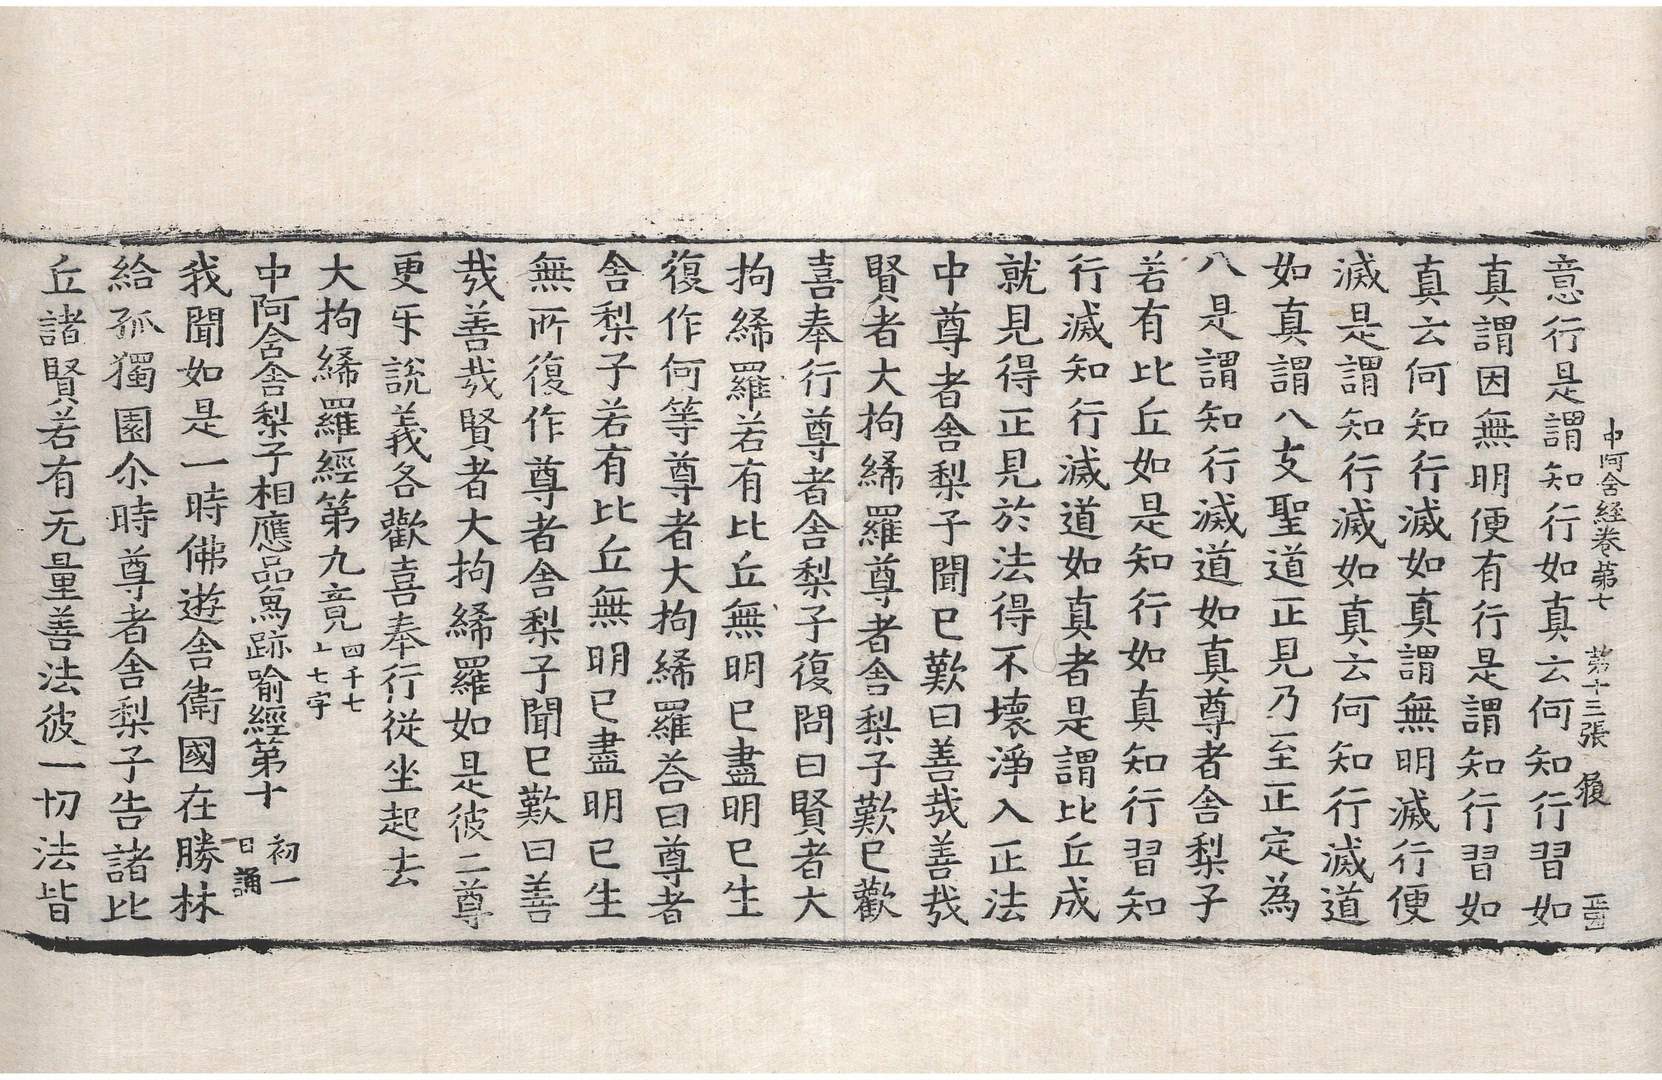 中阿含經卷第七　第十三張　
意行是謂知行如真云何知行習如
真謂因無明便有行是謂知行習如
真云何知行滅如真謂無明滅行便
滅是謂知行滅如真云何知行滅道
如真謂八支聖道正見乃至正定為
八是謂知行滅道如真尊者舍梨子
若有比丘如是知行如真知行習知
行滅知行滅道如真者是謂比丘成
就見得正見於法得不壞淨入正法
中尊者舍梨子聞已歎曰善哉善哉
賢者大拘絺羅尊者舍梨子歎已歡
喜奉行尊者舍梨子復問曰賢者大
拘絺羅若有比丘無明已盡明已生
復作何等尊者大拘絺羅荅曰尊者
舍梨子若有比丘無明已盡明已生
無所復作尊者舍梨子聞已歎曰善
哉善哉賢者大拘絺羅如是彼二尊
更牙說義各歡喜奉行從坐起去
大拘絺羅經第九竟
四千七
上七字
中阿含舍梨子相應品烏跡喻經第十
初一
日誦
我聞如是一時佛遊舍衛國在勝林
給孤獨園尒時尊者舍梨子告諸比
丘諸賢若有无量善法彼一切法皆